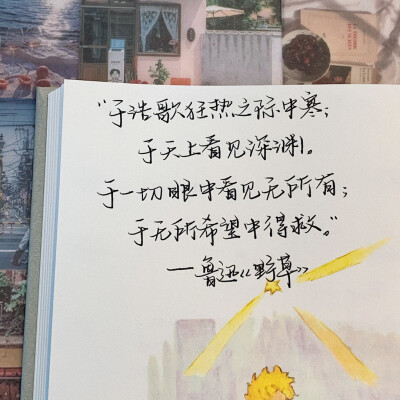 “于浩歌狂热之际中寒；
于天上看见深渊。
于一切眼中看见无所有；
于无所希望中得救。”
—鲁迅《野草》